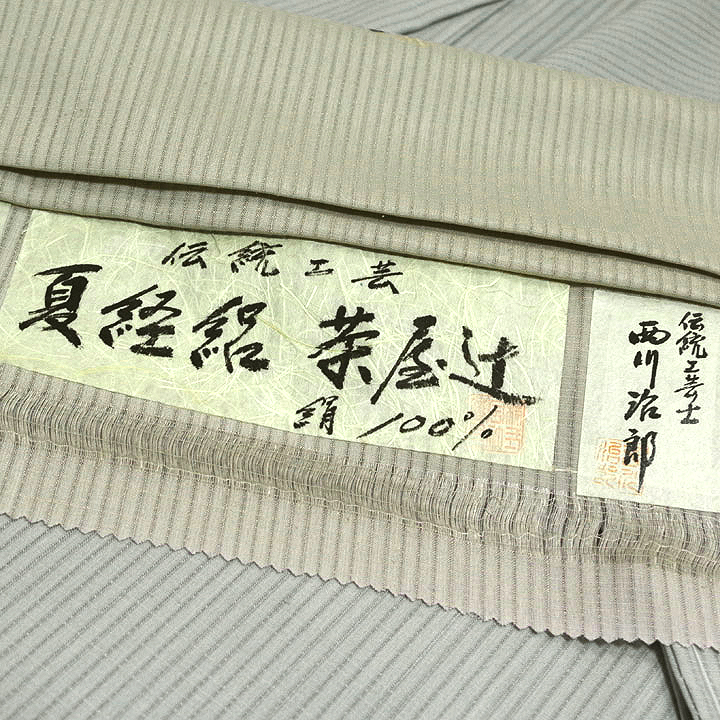 伝統工芸
夏経絽 茶屋辻
絹 100%
伝統工芸士
西川治郎